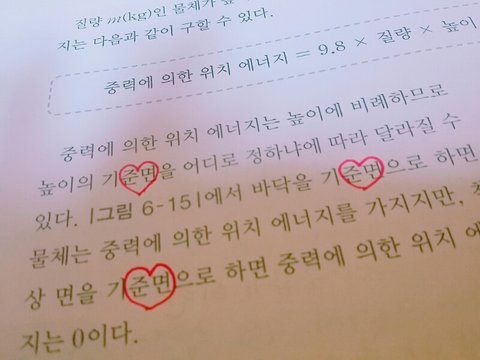 질량 m(kg)인 물체가
지는 다음과 같이 구할 수 있다.
중력에 의한 위치 에너지 = 9.8 × 질량 × 높이
중력에 의한 위치 에너지는 높이에 비례하므로
높이의 기준면을 어디로 정하냐에 따라 달라질 수
있다. |그림 6-15|에서 바닥을 기준면으로 하면
물체는 중력에 의한 위치 에너지를 가지지만,
상 면을 기준면으로 하면 중력에 의한 위치 에
지는 0이다.